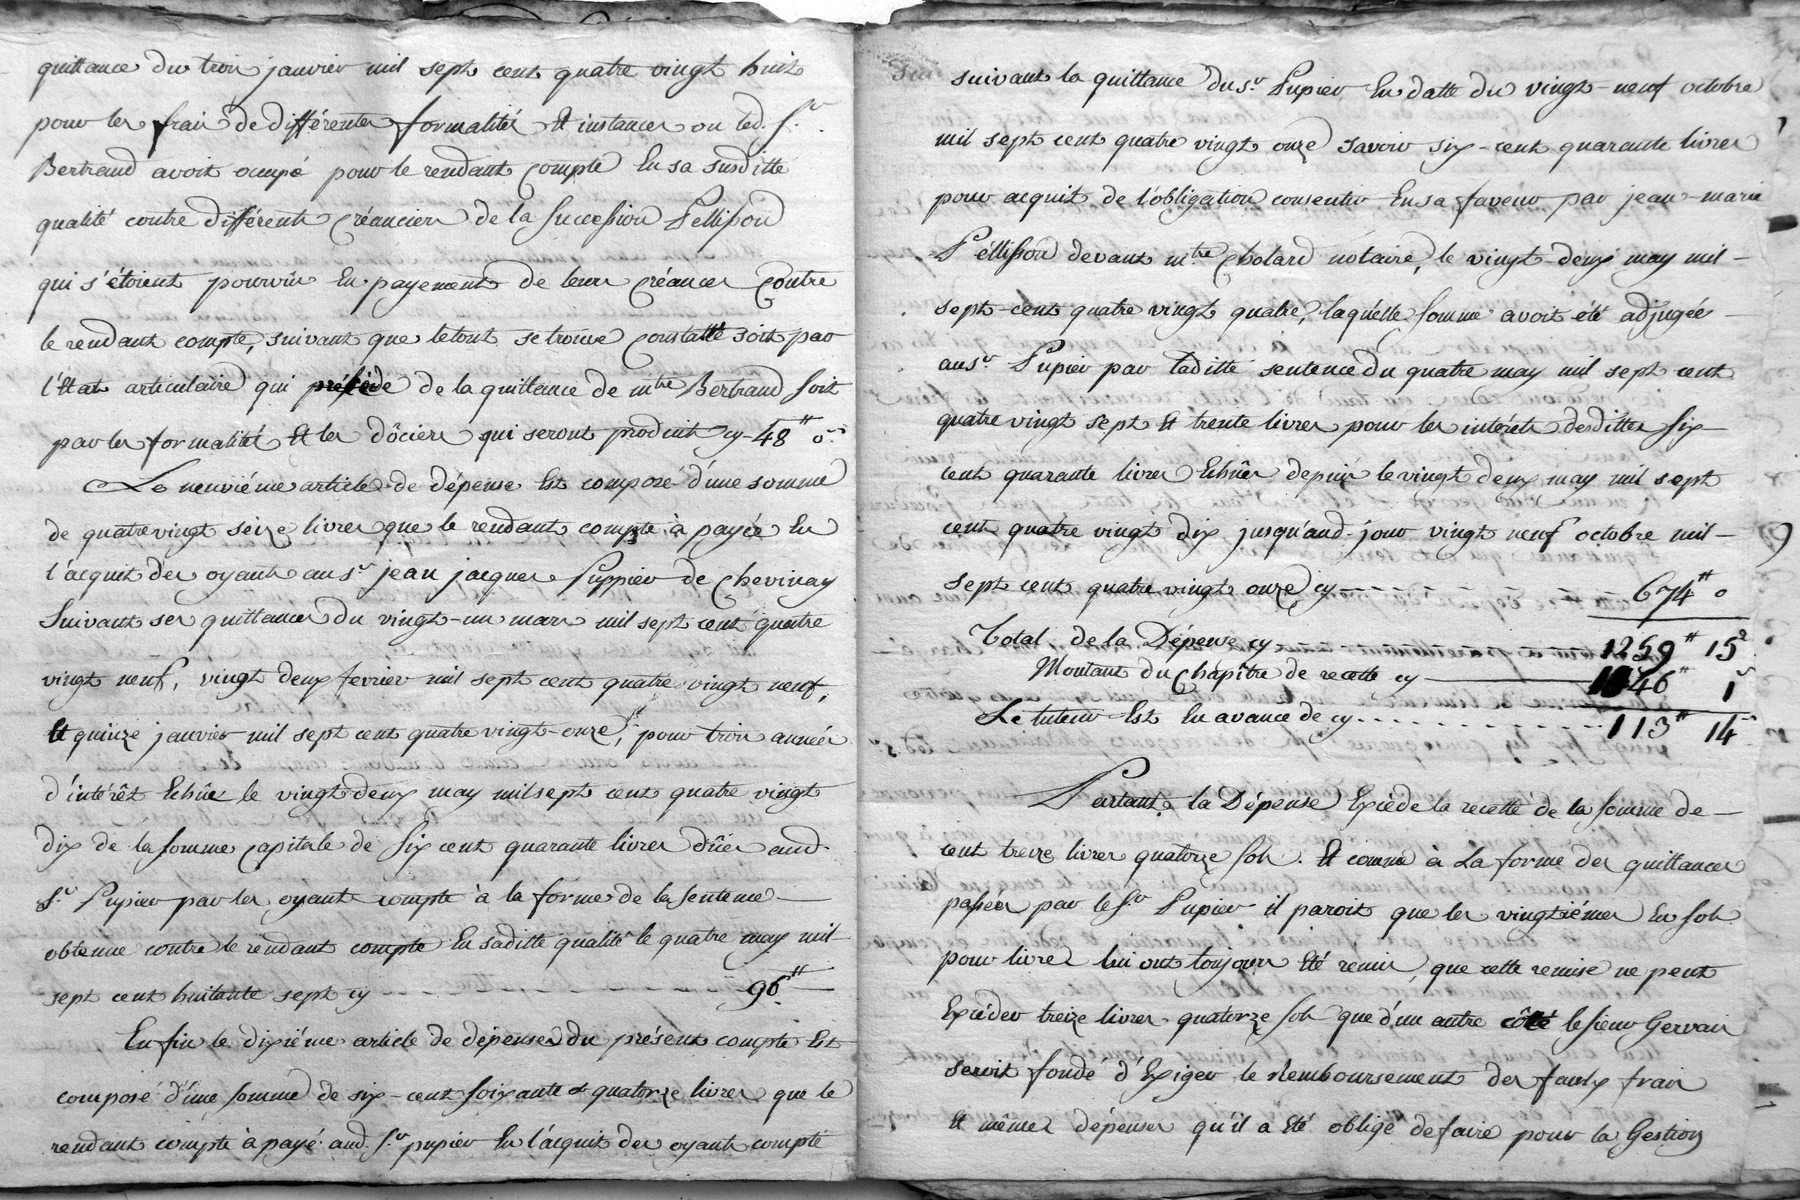 quittance du trois janvier mil sept cent quatre vingt huit
pour les frais de différentes formalités Et instances ou led. S.r
Bertrand avoit ocupé pour le rendant compte En sa susditte
qualité contre différents créanciers de la Succession Pellisson
qui s'étoient pourvûs En payement de leurs créances contre
le rendant compte, suivant que le tout se trouve constaté soit par
l'Etat articulaire qui précède de la quittance de m.tre Bertrand soit
par les formalités Et les dôciers qui seront produits cy - 48 ₶ 0 s
Le neuviéme article de dépense Est composé d'une somme
de quatre vingt seize livres que le rendant compte à payée En
l'acquit des oyants au s.r jean jacques Puppier de Chevinay
Suivant ses quittances du vingt-un mars mil sept cent quatre
vingt neuf, vingt deux fevrier mil sept cent quatre vingt neuf,
Et quinze janvier mil sept cent quatre vingt-onze, pour trois années
d'intérêt Echûe le vingt deux may mil sept cent quatre vingt
dix de la somme capitale de six cent quarante livres dûes aud.
S.r Pupier par les oyants compte à la forme de la Sentence
obtenue contre le rendant compte En saditte qualité le quatre may mil
sept cent huitante sept cy - - - 96 ₶
En fin le dixiéme article de dépenses du présent compte Est
composé d'une somme de six-cent soixante & quatorze livres que le
rendant compte à payé aud. S.r pupier En l'acquit des oyants compte
suivant la quittance du s.r Pupier En datte du vingt-neuf octobre
mil sept cent quatre vingt onze savoir six-cent quarante livres
pour acquit de l'obligation consentie En sa faveur par jean-marie
Péllisson devant m.tre Cholard notaire, le vingt-deux may mil-
sept-cent quatre vingt quatre, laquelle somme avoit été adjugée
au s.r Pupier par laditte sentence du quatre may mil sept cent
quatre vingt sept Et trente livres pour les intérêts desdittes six
cent quarante livres Echûes depuis le vingt deux may mil sept
cent quatre vingt dix jusqu'aud. jour vingt neuf octobre mil-
sept cent quatre vingt onze cy - - - 674 ₶ 0
Total de la Dépense cy - - - 1259 ₶ 15 s
Montant du Chapître de recette cy - 1146 ₶ 1 s
Le tuteur Est En avance de cy - - - 113 ₶ 14 s
Partant la Dépense Excède la recette de la somme de
cent treize livres quatorze sols. Et comme à la forme des quittances
passées par le S.r Pupier il paroit que les vingtiémes En sols
pour livres lui ont toujours Eté remis, que cette remise ne peut
Excéder treize livres quatorze sols que d'un autre côté le sieur Gervais
seroit fondé d'Exiger le Remboursement des faux frais
Et mêmes dépenses qu'il a Eté obligé de faire pour la Gestion